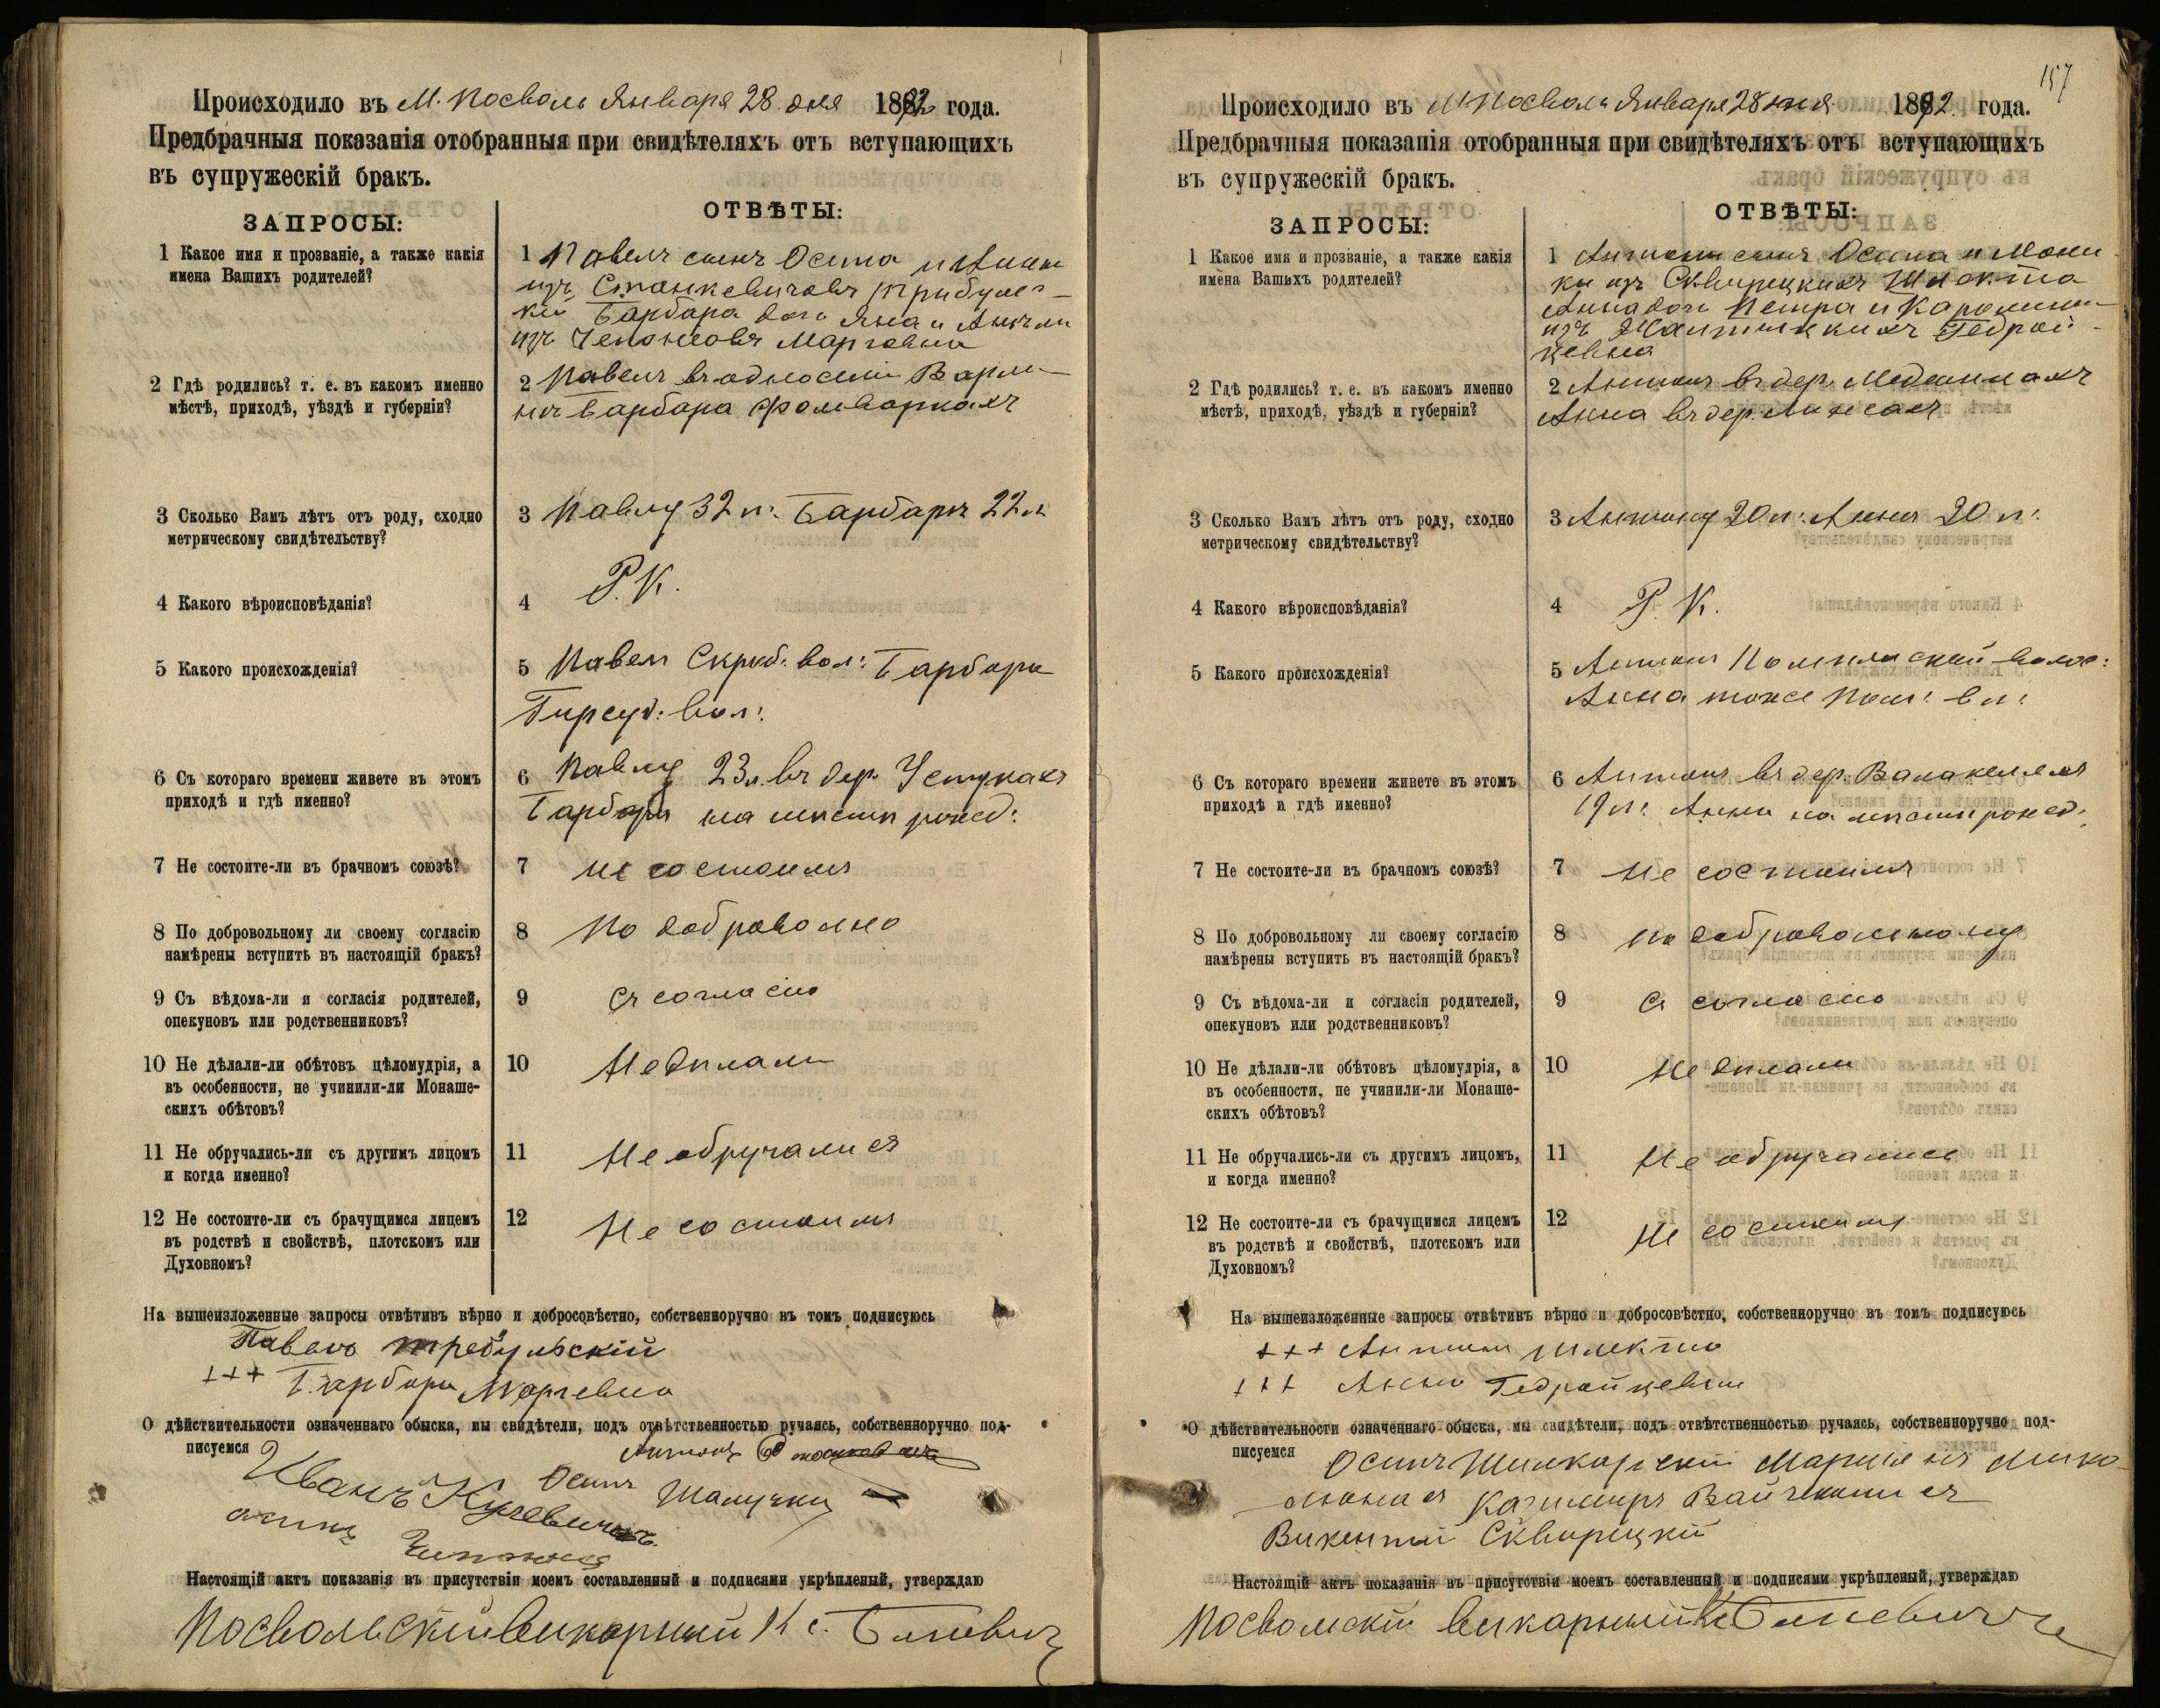 Происходило въ М. Посволь Января 28 дня 1892 года.
Предбрачныя показанія отобранныя при свидѣтеляхъ отъ вступающихъ
въ супружескій бракъ.
ЗАПРОСЫ:
ОТВѢТЫ:
1 Какое имя и прозваніе, а также какія
имена Вашихъ родителей?
1 Павелъ сынъ Осипа и Анны
изъ Станкевичовъ Трибульс-
кій Барбара дочь Яна и Анели
изъ Чепонсовъ Марчевна
2 Гдѣ родились? т. е. въ какомъ именно
мѣстѣ, приходѣ, уѣздѣ и губерніи?
2 Павелъ въ околоткѣ
Барбара Фольваркахъ
3 Сколько Вамъ лѣтъ отъ роду, сходно
метрическому свидѣтельству?
3 Павлу 32 л. Барбарѣ 22 л.
4 Какого вѣроисповѣданія?
4 Р. К.
5 Какого происхожденія?
5 Павелъ Скроб: вол: Барбара
вол:
6 Съ котораго времени живете въ этомъ
приходѣ и гдѣ именно?
6 Павлу 23 л. въ дер. Устукахъ
Барбара на мѣстѣ рожд:
7 Не состоите-ли въ брачномъ союзѣ?
7 не состоимъ
8 По добровольному ли своему согласію
намѣрены вступить въ настоящій бракъ?
8 По доброволно
9 Съ вѣдома-ли и согласія родителей,
опекуновъ или родственниковъ?
9 Съ согласія
10 Не дѣлали-ли обѣтовъ цѣломудрія, а
въ особенности, не учинили-ли Монаше-
скихъ обѣтовъ?
10 Не дѣлали
11 Не обручались-ли съ другимъ лицомъ
и когда именно?
11 Не обручалися
12 Не состоите-ли съ брачущимся лицемъ
въ родствѣ и свойствѣ, плотскомъ или
Духовномъ?
12 Не состоимъ
На вышеизложенные запросы отвѣтивъ вѣрно и добросовѣстно, собственноручно въ томъ подписуюсь
Павелъ Требульскій
+++ Барбара Марчевна
О дѣйствительности означеннаго обыска, мы свидѣтели, подъ отвѣтственностью ручаясь, собственноручно под-
писуемся
Антонъ
Иванъ Осипъ
Посвольскій викарный Кс.
Настоящій актъ показанія въ присутствіи моемъ составленный и подписями укрѣпленый, утверждаю
157
Происходило въ М. Посволь Января 28 дня 1892 года.
Предбрачныя показанія отобранныя при свидѣтеляхъ отъ вступающихъ
въ супружескій бракъ.
ЗАПРОСЫ:
ОТВѢТЫ:
1 Какое имя и прозваніе, а также какія
имена Вашихъ родителей?
1 Антонъ сынъ Осипа и Мони
ки изъ Сквирецкихъ Шлекта
Анна дочь Петра и Каролины
изъ Гедрой-
цевна
2 Гдѣ родились? т. е. въ какомъ именно
мѣстѣ, приходѣ, уѣздѣ и губерніи?
2 Антонъ въ дер.
Анна въ дер.
3 Сколько Вамъ лѣтъ отъ роду, сходно
метрическому свидѣтельству?
3 Антону 20 л: Анна 20 л:
4 Какого вѣроисповѣданія?
4 Р. К.
5 Какого происхожденія?
5 Антонъ волос:
Анна тоже вл:
6 Съ котораго времени живете въ этомъ
приходѣ и гдѣ именно?
6 Антонъ въ дер.
19 л: Анна на мѣстѣ рожд:
7 Не состоите-ли въ брачномъ союзѣ?
7 Не состоимъ
8 По добровольному ли своему согласію
намѣрены вступить въ настоящій бракъ?
8 по добровольному
9 Съ вѣдома-ли и согласія родителей,
опекуновъ или родственниковъ?
9 Съ согласія
10 Не дѣлали-ли обѣтовъ цѣломудрія, а
въ особенности, не учинили-ли Монаше-
скихъ обѣтовъ?
10 Не дѣлали
11 Не обручались-ли съ другимъ лицомъ,
и когда именно?
11 Не обручались
12 Не состоите-ли съ брачущимся лицемъ
въ родствѣ и свойствѣ, плотскомъ или
Духовномъ?
12 Не состоимъ
На вышеизложенные запросы отвѣтивъ вѣрно и добросовѣстно, собственноручно въ томъ подписуюсь
+++ Антонъ Шлекта
+++ Анна Гедройцевна
О дѣйствительности означеннаго обыска, мы свидѣтели, подъ отвѣтственностью ручаясь, собственноручно под-
писуемся
Осипъ
Казимиръ
Викентій Сквирецкій
Настоящій актъ показанія въ присутствіи моемъ составленный и подписями укрѣпленый, утверждаю
Посволскій викарный Кс.